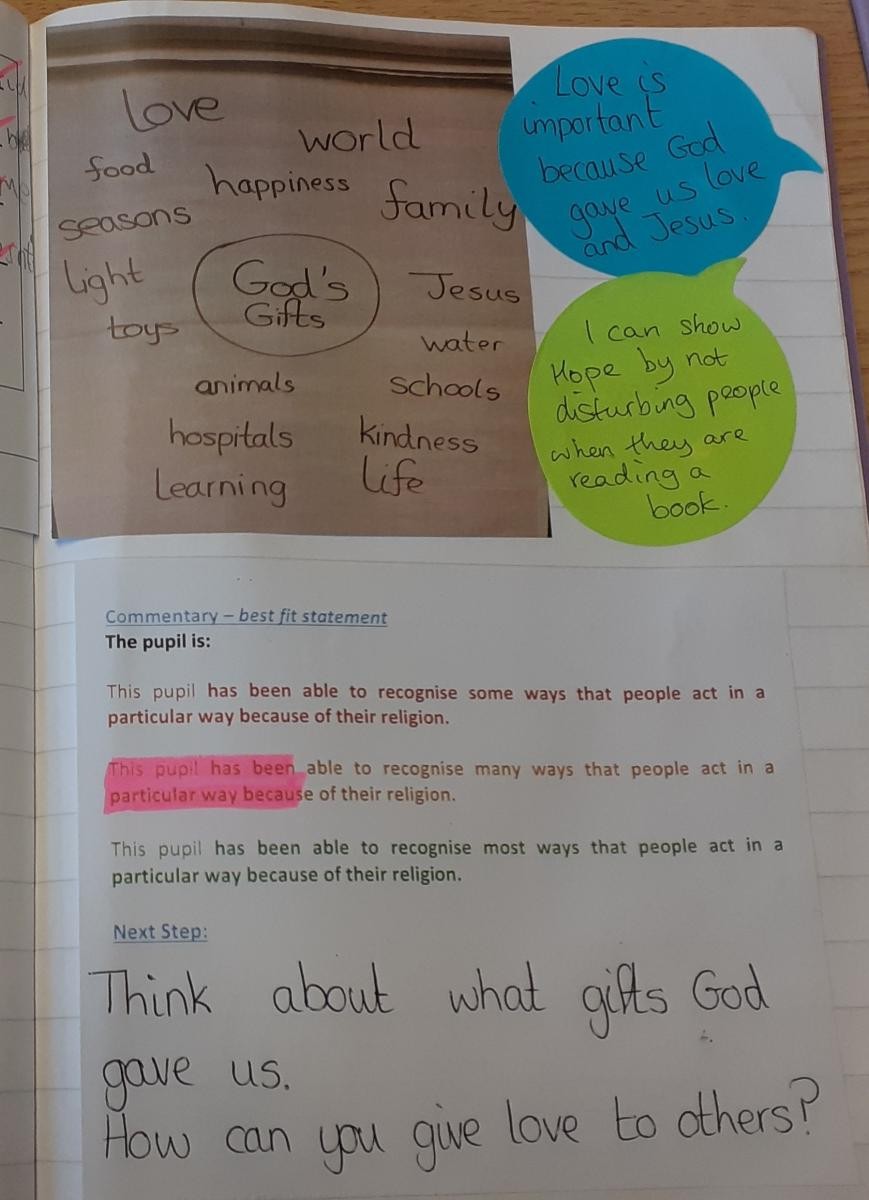 Love
world
food
happiness
family
seasons
light
God's
Gifts
Jesus
toys
water
animals
schools
hospitals
kindness
Learning
life
Love is
important
because God
gave us love
and Jesus.
I can show
Hope by not
disturbing people
when they are
reading a
book.
Commentary – best fit statement
The pupil is:
This pupil has been able to recognise some ways that people act in a
particular way because of their religion.
This pupil has been able to recognise many ways that people act in a
particular way because of their religion.
This pupil has been able to recognise most ways that people act in a
particular way because of their religion.
Next Step:
Think about what gifts God
gave us.
How can you give love to others?